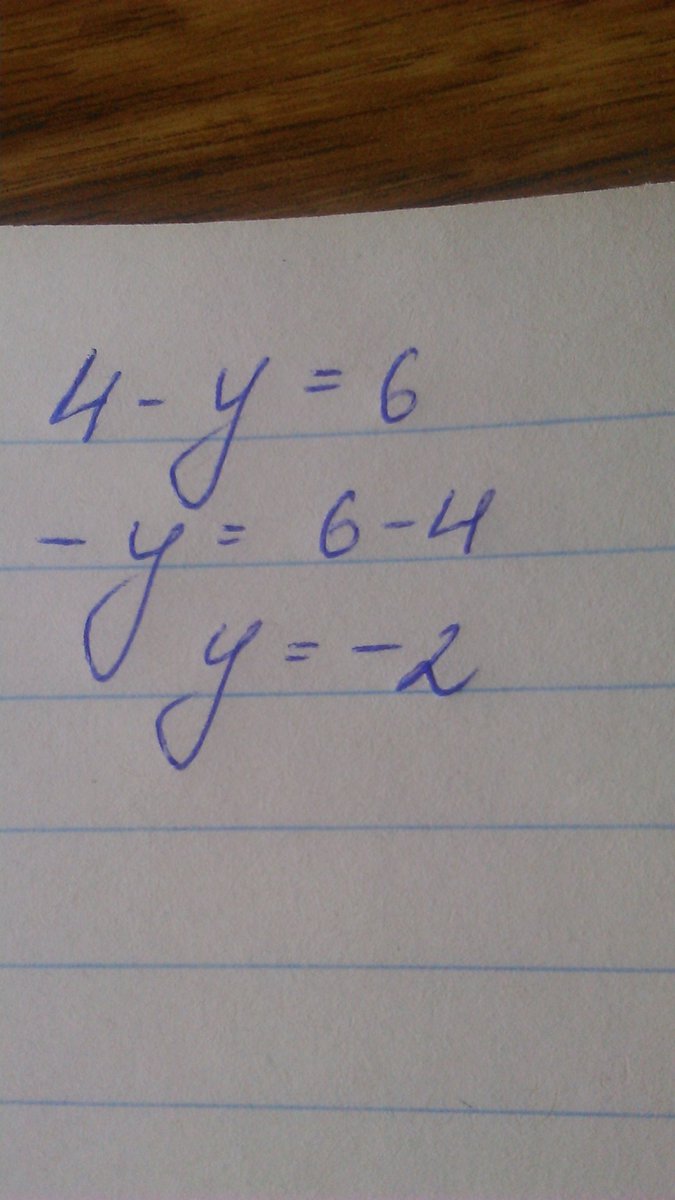 4 - y = 6
- y = 6 - 4
y = - 2